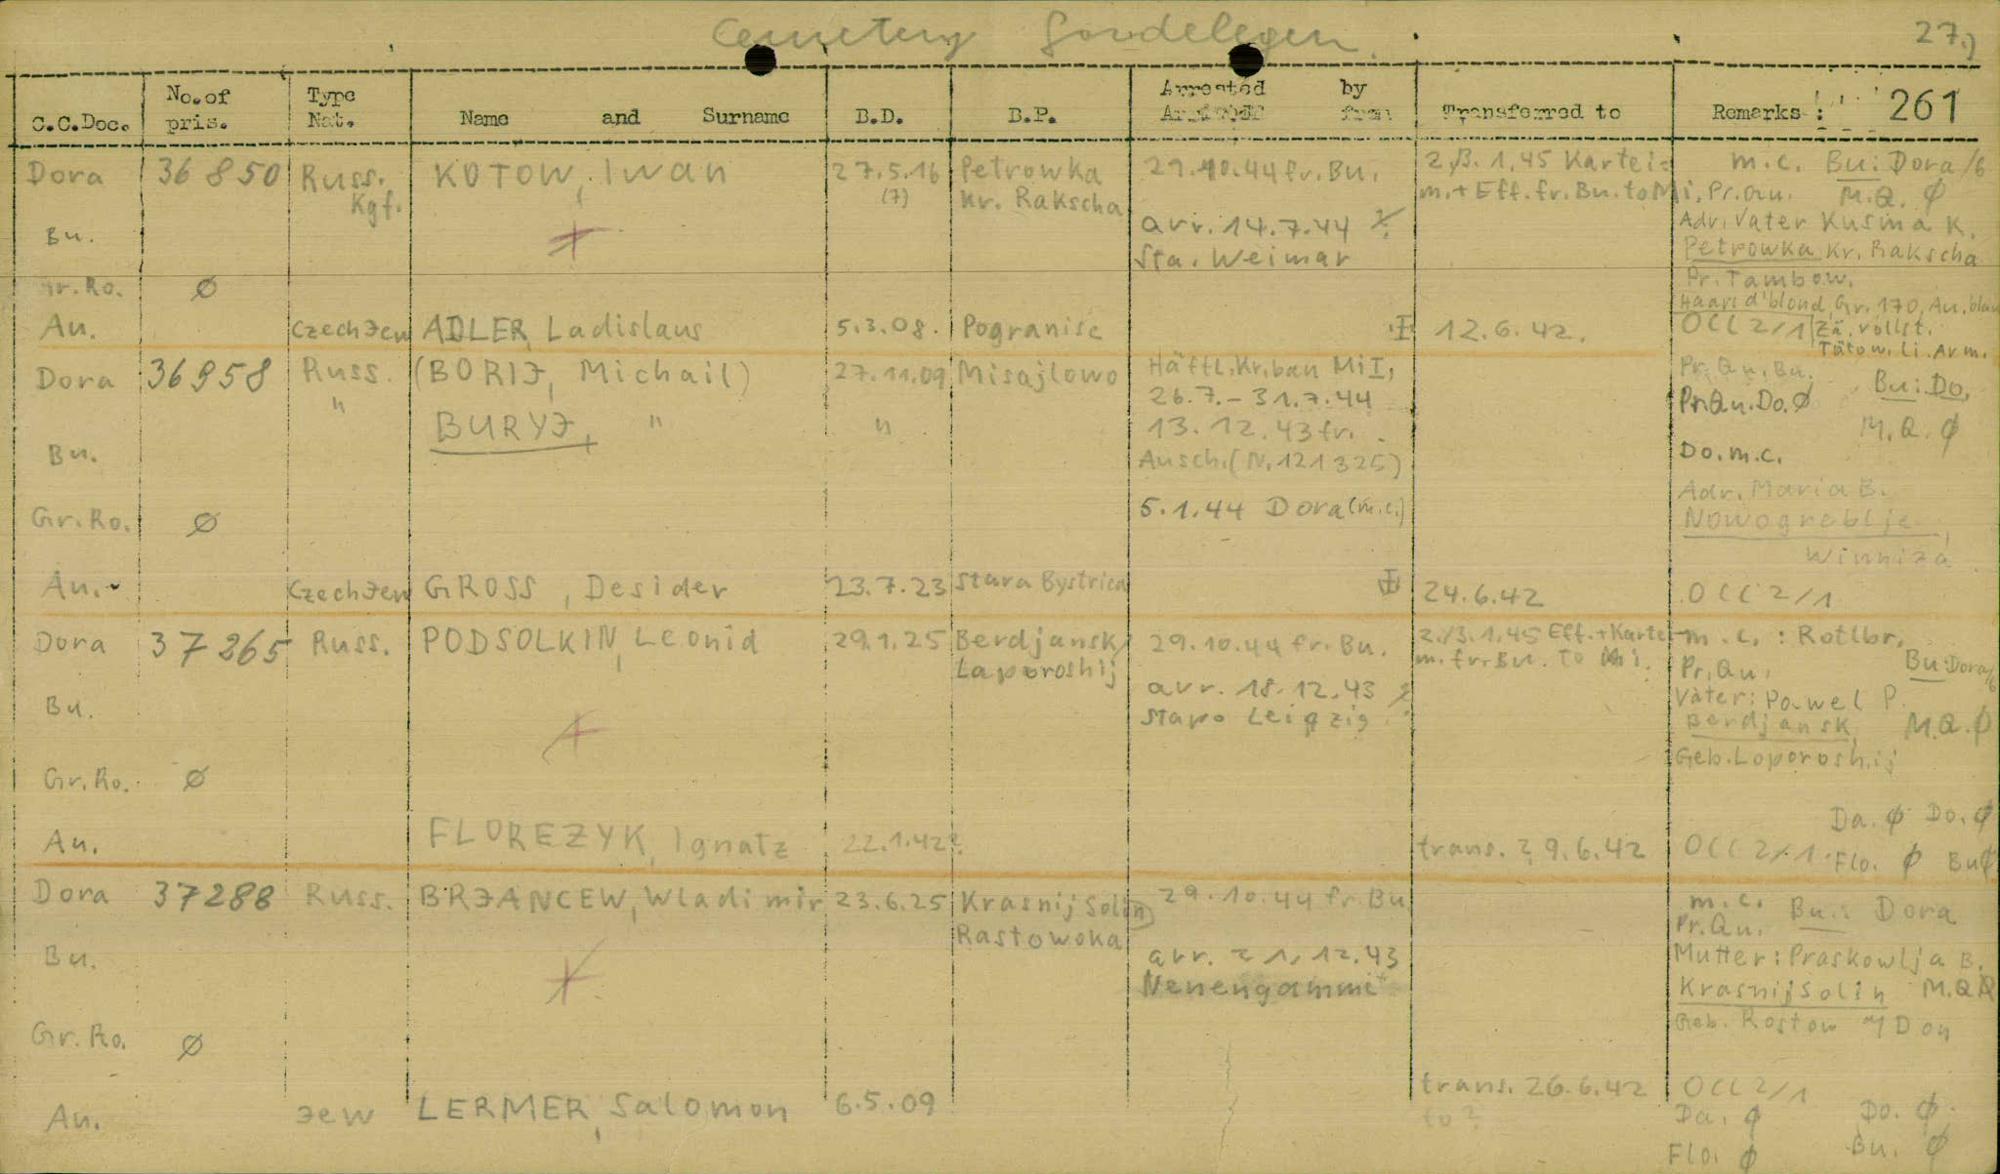 Cemetery Gardelegen. 27.)
C.C.Doc. No. of pris. Type Nat. Name and Surname B.D. B.P. Arrested by from Transferred to Remarks : 261
Dora 36850 Russ. KOTOW, Iwan 27.5.16 Petrowka 29.10.44 fr. Bu. 2./3.1.45 Kartei= m.c. Bu: Dora/6
Kgf. (7) Kr. Rakscha m.+Eff. fr. Bu. to Mi, Pr.Qu. M.Q. Ø
Bu. + arr. 14.7.44 Adr. Vater Kusma K.
Sta. Weimar Petrowka Kr. Rakscha
Gr.Ro. Ø Pr. Tambow.
Haare d'blond, Gr. 170, Au. blau
An. Czech Jew ADLER, Ladislaus 5.3.08. Pogranise 12.6.42. OCC 2/1 Zä. vollst.
Tätow. li. Arm.
Dora 36958 Russ. (BORIJ, Michail) 27.11.09 Misajlowo Häftl. Kr. bau Mi I, Pr. Qu. Bu. Bu: Do.
" BURYJ, " " 26.7. - 31.7.44 Pr.Qu. Do. Ø
13.12.43 fr. M.Q. Ø
Bu. Ausch. (N. 121325) Do. m.c.
Gr.Ro. Ø 5.1.44 Dora (m.c.) Adr. Maria B.
Nowogreblje
Winniza
An. Czech Jew GROSS, Desider 23.7.23 Stara Bystrica 24.6.42 OCC 2/1
Dora 37265 Russ. PODSOLKIN, Leonid 29.1.25 Berdjansk/ 29.10.44 fr. Bu. 2./3.1.45 Eff.+Kartei m.c. : Rotlbr.
Laporoshij m. fr. Bu. to Mi. Pr. Qu. Bu: Dora/6
Bu. + arr. 18.12.43 Vater: Pawel P.
Stapo Leipzig Berdjansk M.Q. Ø
Gr.Ro. Ø Geb. Loporoshij
Da. Ø Do. Ø
An. FLOREZYK, Ignatz 22.1.42? trans. ? 9.6.42 OCC 2/1 Flo. Ø Bu Ø
Dora 37288 Russ. BRJANCEW, Wladimir 23.6.25 Krasnij Solin 29.10.44 fr. Bu m.c. Bu: Dora
Rastowska Pr. Qu.
Bu. + arr. 21.12.43 Mutter: Praskowlja B.
Neuengamme Krasnij Solin M.Q. Ø
Gr.Ro. Ø Geb. Rostow a/Don
trans. 26.6.42 OCC 2/1
An. Jew LERMER, Salomon 6.5.09 to ? Da. Ø Do. Ø
Flo. Ø Bu. Ø